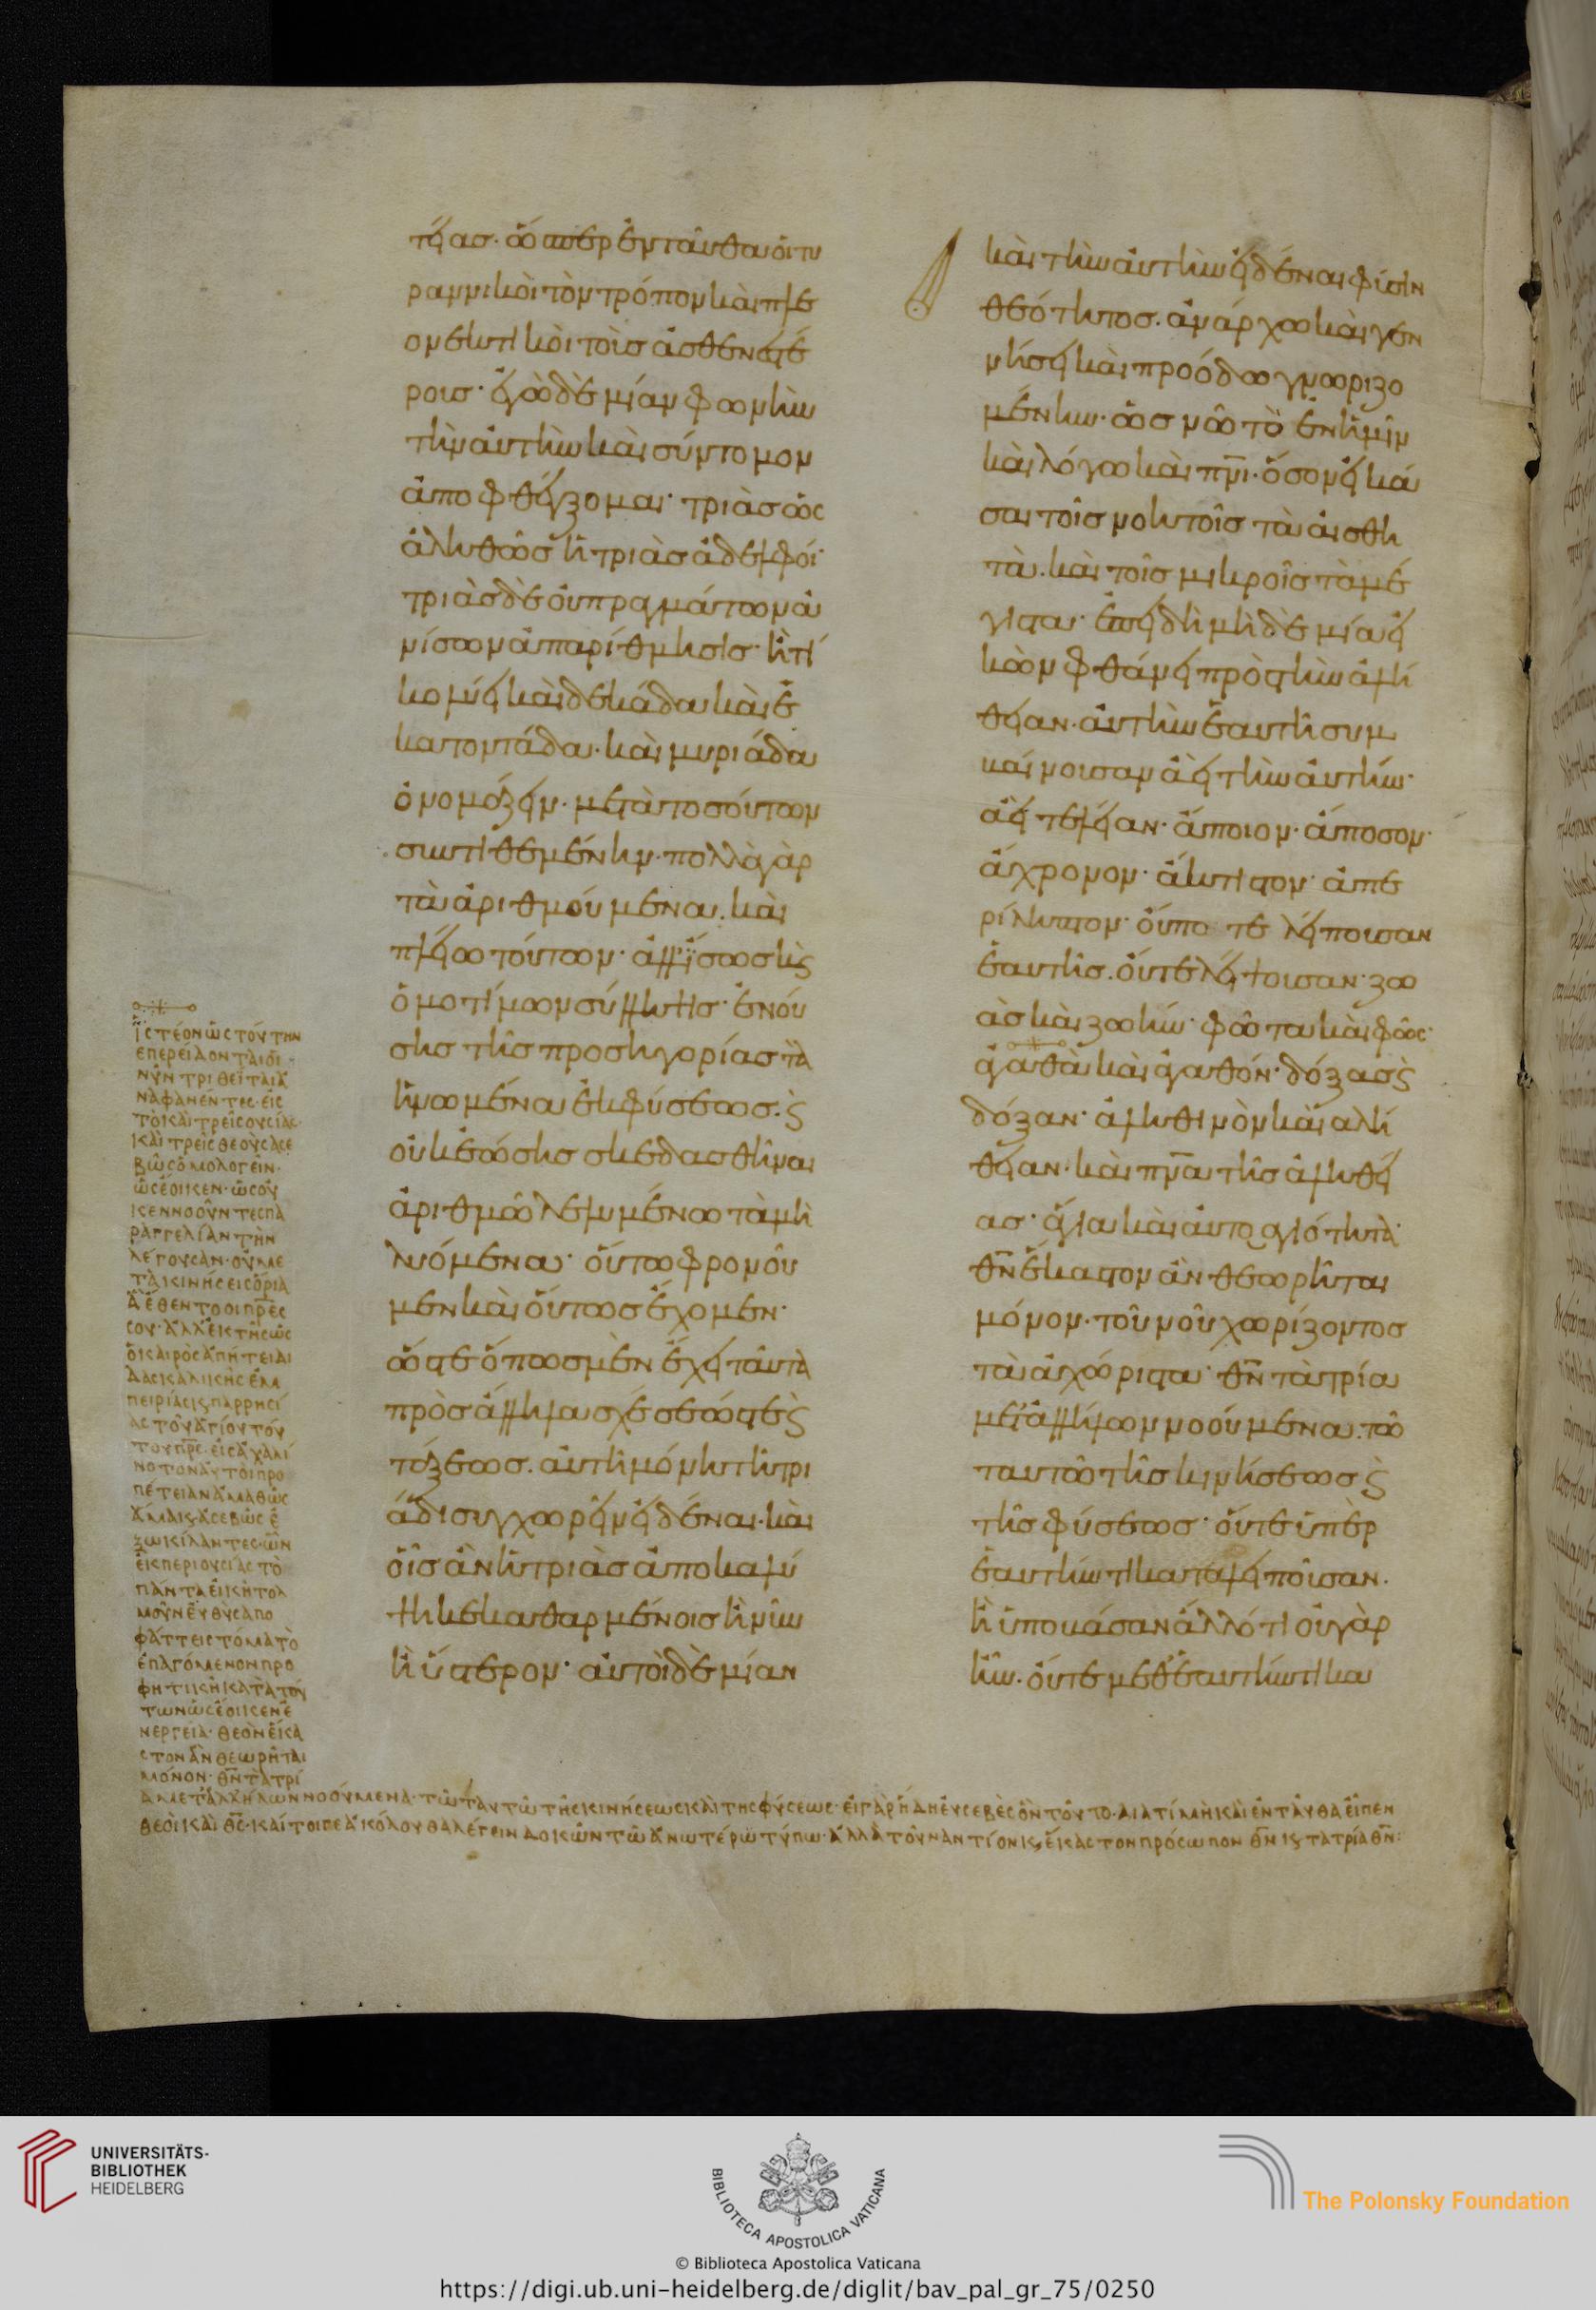 τείας· ὥσπερ ἐνταῦθα οἱ τυ
ραννικοὶ τὸν τρόπον καὶ πλε
ονεκτικοὶ τοῖς ἀσθενεστέ
ροις· ἐγὼ δὲ μίαν φωνὴν
τὴν αὐτὴν καὶ σύντομον
ἀποφθέγξομαι· τριὰς ὡς
ἀληθῶς ἡ τριὰς ἀδελφοί·
τριὰς δὲ οὐ πραγμάτων ἀ
νίσων ἀπαρίθμησις· ἢ τί
κολύει καὶ δεκάδα καὶ ἑ
κατοντάδα· καὶ μυριάδα
ὀνομάζειν· μετὰ τοσούτων
συντιθεμένην· πολλὰ γὰρ
τὰ ἀριθμούμενα. καὶ
πλείω τούτων· ἀλλ' ἴσως κ(αὶ)
ὁμοτίμων σύλληψις· ἑνού
σης τῆς προσηγορίας τὰ
ἡνωμένα ἐκ φύσεως. ϗ
οὐκ ἐώσης σκεδασθῆναι
ἀριθμῷ λελυμένῳ τὰ μὴ
λυόμενα· οὕτω φρονοῦ
μεν καὶ οὕτως ἔχομεν·
ὥστε ὅπως μὲν ἔχει ταῦτα
πρὸς ἄλληλα σχέσεώς τε ϗ
τάξεως. αὐτῇ μόνῃ τῇ τρι
άδι συγχωρεῖν εἰδέναι· καὶ
οἷς ἂν ἡ τριὰς ἀποκαλύ
ψῃ κεκαθαρμένοις ἢ νῦν
ἢ ὕστερον· αὐτοὶ δὲ μίαν
καὶ τὴν αὐτὴν εἰδέναι φύσιν
θεότητος. ἀνάρχω καὶ γεν
νήσει καὶ προόδω γνωριζο
μένην· ὡς νῷ τῷ ἐν ἡμῖν
καὶ λόγω καὶ πνι· ὅσον εἰκά
σαι τοῖς νοητοῖς τὰ αἰσθη
τὰ. καὶ τοῖς μικροῖς τὰ μέ
γιστα· ἐπειδὴ μηδὲ μία εἰ
κὼν φθάνει πρὸς τὴν ἀλή
θειαν. αὐτὴν ἑαυτῇ συμ
βαίνουσαν ἀεὶ τὴν αὐτήν·
ἀεὶ τελείαν· ἄποιον· ἄποσον·
ἄχρονον· ἄκτιστον· ἀπε
ρίληπτον· οὔποτε λείπουσαν
ἑαυτῆς. οὔτε λείψουσαν· ζω
ὰς καὶ ζωήν· φῶτα καὶ φῶς·
ἀγαθὰ καὶ ἀγαθόν· δόξας ϗ
δόξαν· ἀληθινὸν καὶ ἀλή
θειαν· καὶ πνα τῆς ἀληθεί
ας· ἅγια καὶ αὐτοαγιότητα·
θν ἕκαστον ἂν θεωρῆται
μόνον· τοῦ νοῦ χωρίζοντος
τὰ ἀχώριστα· θν τὰ τρία
μετ' ἀλλήλων νοούμενα. τῷ
ταυτῷ τῆς κινήσεως ϗ
τῆς φύσεως· οὔτε ὑπὲρ
ἑαυτήν τι καταλειποῦσαν.
ἢ ὑπερβᾶσαν ἄλλό τι οὐ γὰρ
ἦν. οὔτε μεθ' ἑαυτήν τι κα
ἰστέον ὡς τούτην
ΝῦΝ τριθεῗται ἀ
ΝαφαΝέΝτες· εἰς
τὸ καὶ τρεῖς οὐσίας·
καὶ τρεῖς θεοὺς ἀσε
βῶς ὁμολογεῖν·
ὡς ἔοικεν· ὡς οὐ
κ ἐννοοῦντες πα
ραγγελίαν τὴν
λέγουσαν· οὐ με
τακινήσεις ὅρια
ἃ ἔθεντο οἱ πρες
σου· ἀλλ' ἐκ τῆς ὡς
ὁ καιρὸς ἀπῄτει δι
δασκαλικῆς ἐμ
πειρίας ϗ παρρησί
ας τοῦ ἁγίου τού
του πρς· εἰς ἀχαλί
νωτον αὐτοὶ προ
πέτειαν ἀμαθῶς
ἅμα ϗ ἀσεβῶς ἐ
ξωκίλαντες· ὧν
ἐκ περιουσίας τὸ
πάντα εἰκῆ τολ
μοῦν εὐθὺς ἀπο
φράττει στόμα τὸ
ἐπαγόμενον προ
φητικῇ κατὰ τού
των ὡς ἔοικεν ἐ
νεργεία· θεὸν ἕκα
στον ἂν θεωρῆται
μόνον· θν τὰ τρί
α μετ' ἀλλήλων νοούμενα· τῶ ταυτῶ τῆς κινήσεως καὶ τῆς φύσεως· εἰ γὰρ ἤδη εὐσεβὲς ὂν τοῦτο· διατί μὴ καὶ ἐνταῦθα εἶπεν
θεοὶ καὶ θς· καίτοιγε ἀκόλουθα λέγειν δοκῶν τῶ ἀνωτέρω τύπω· ἀλλὰ τοὐναντίον ϗ ἕκαστον πρόσωπον θν ϗ τὰ τρία θν:
UNIVERSITÄTS-
BIBLIOTHEK
HEIDELBERG
BIBLIOTECA APOSTOLICA VATICANA
The Polonsky Foundation
© Biblioteca Apostolica Vaticana
https://digi.ub.uni-heidelberg.de/diglit/bav_pal_gr_75/0250